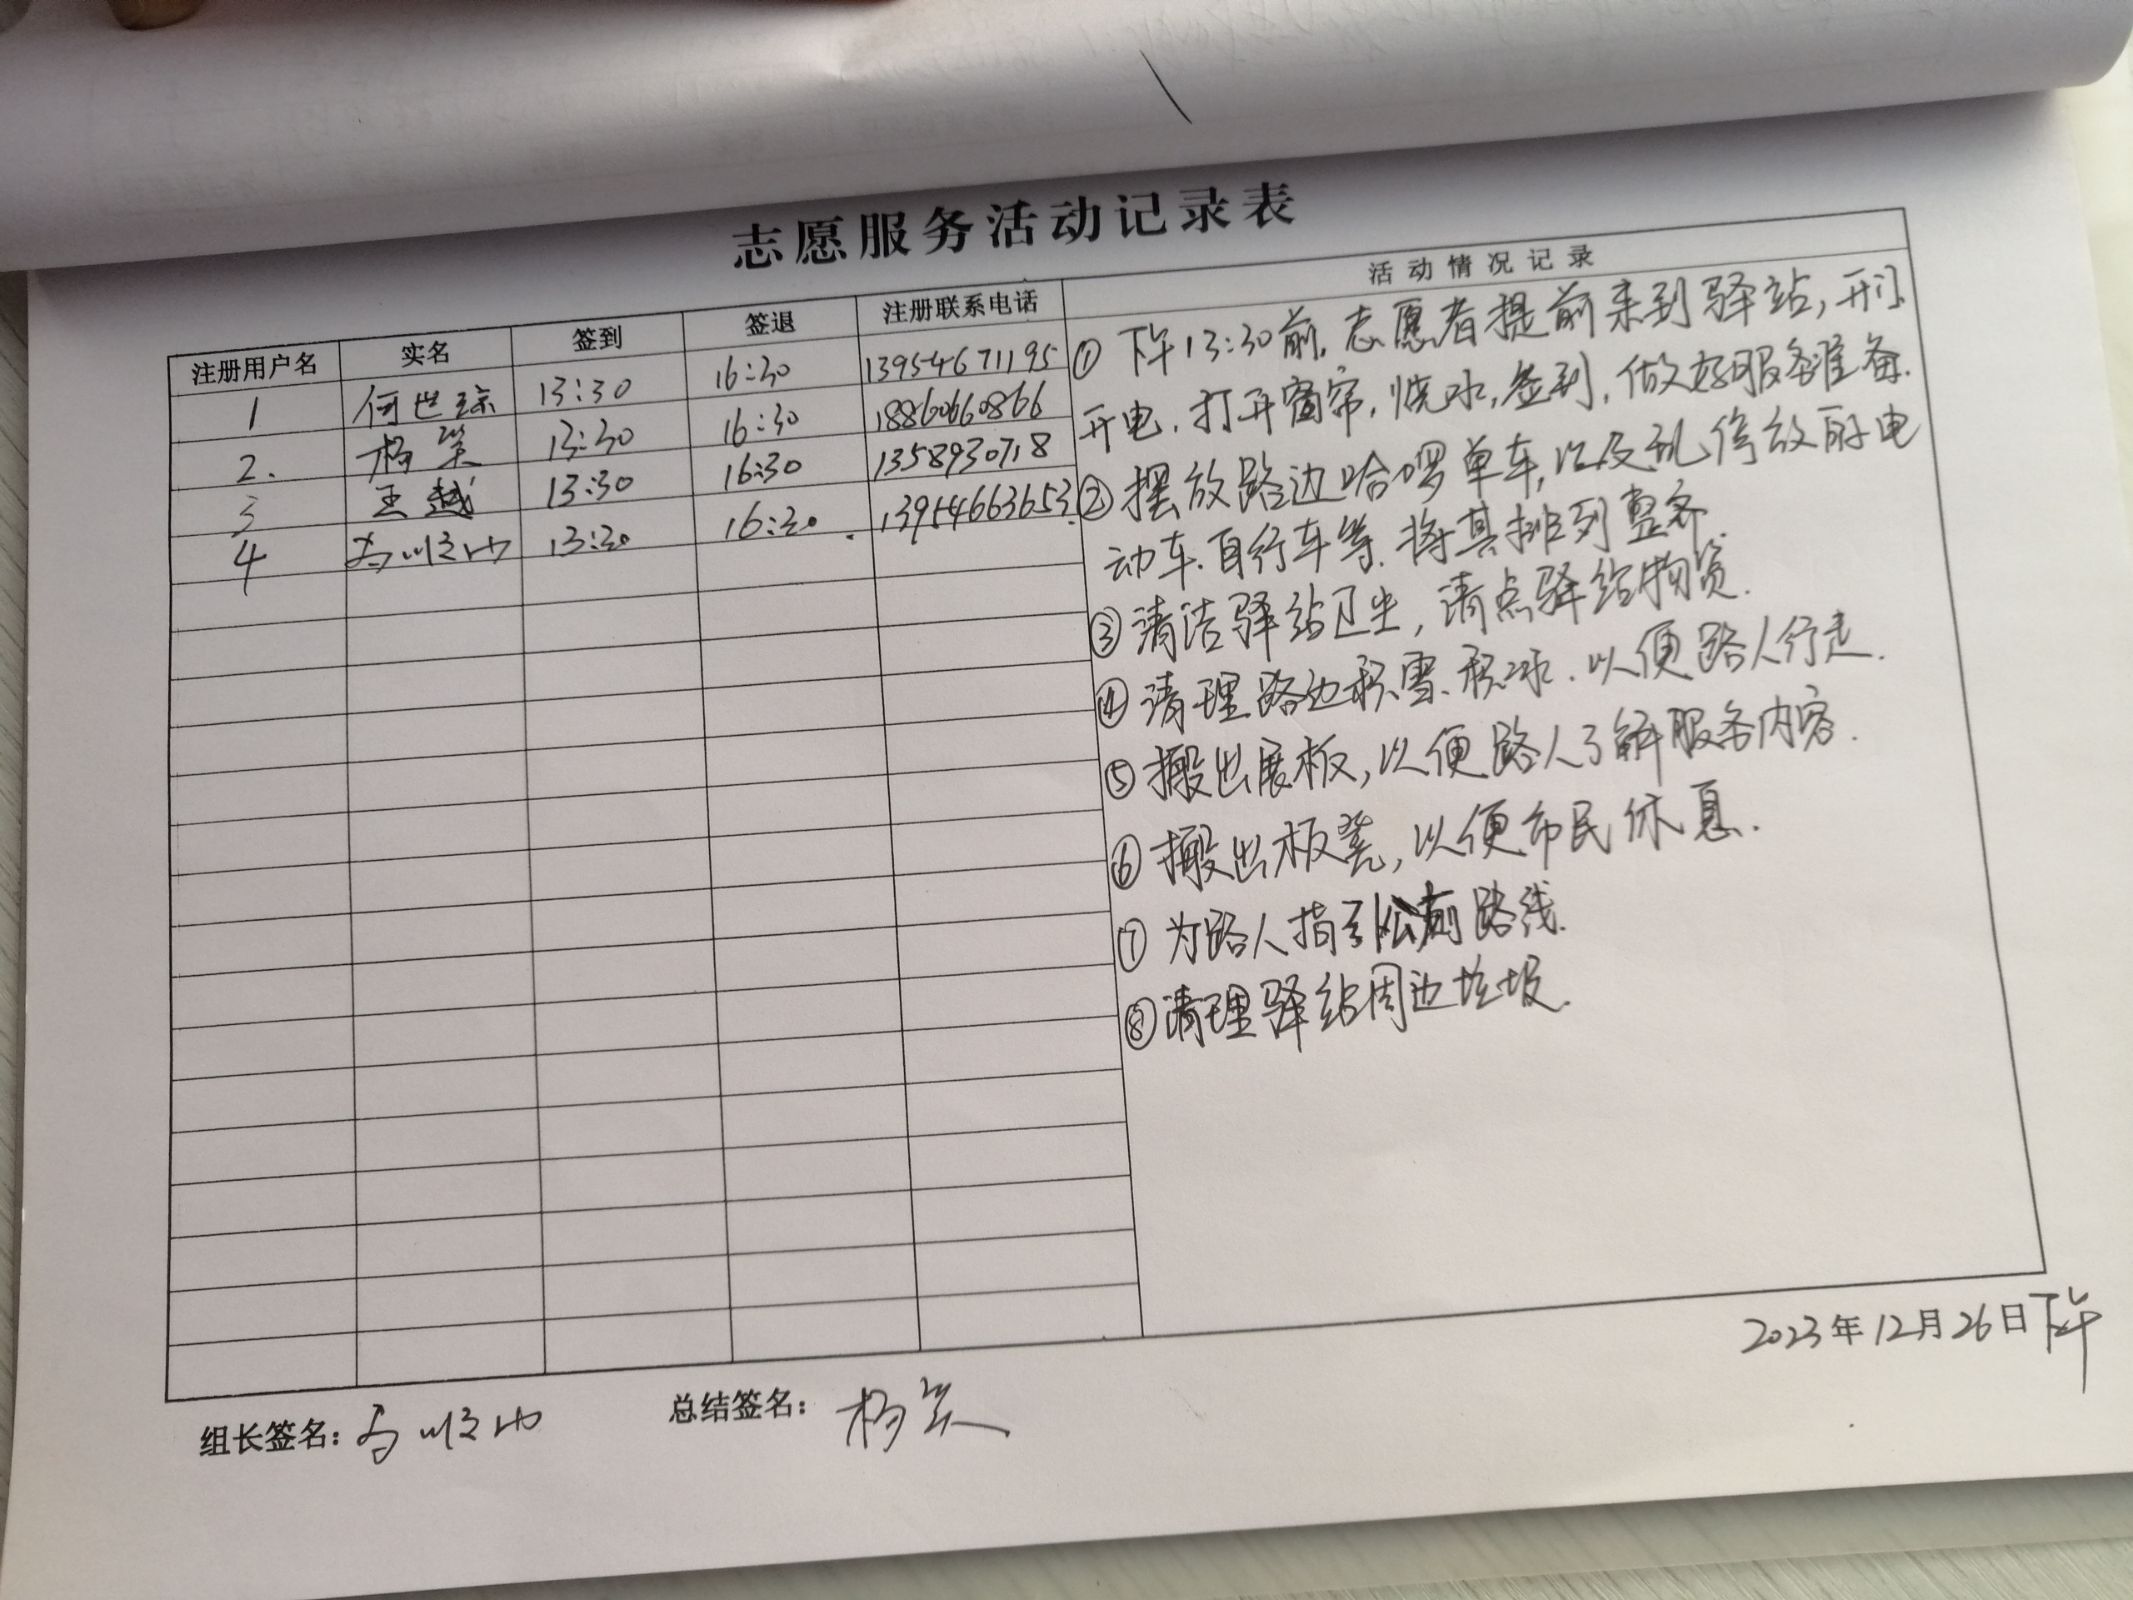 志愿服务活动记录表
注册用户名 实名 签到 签退 注册联系电话 活动情况记录
1 何世琼 13:30 16:30 13954671195
2. 杨笑 13:30 16:30 18860660866
3 王越 13:30 16:30
4 13:30 16:30 13954663653
①下午13:30前,志愿者提前来到驿站,开门
开电,打开窗帘,烧水,签到,做好服务准备.
②摆放路边哈啰单车,以及乱停放的电
动车.自行车等.将其排列整齐.
③清洁驿站卫生,清点驿站物资.
④清理路边积雪、积冰.以便路人行走.
⑤搬出展板,以便路人了解服务内容.
⑥搬出板凳,以便市民休息.
⑦为路人指引路线.
⑧清理驿站周边垃圾.
2023年12月26日下午
组长签名: 总结签名: 杨笑